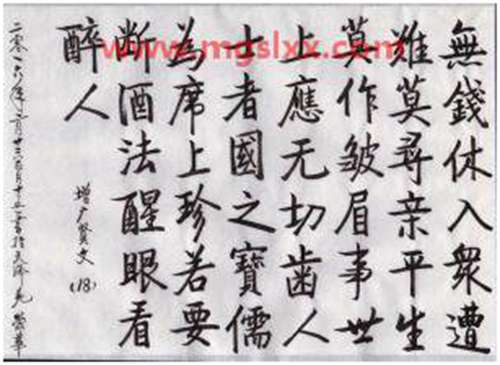 無錢休入眾遭
難莫尋亲平生
莫作皱眉事世
上應无切齒人
士者國之寶儒
為席上珍若要
断酒法醒眼看
醉人
增广贤文
(18)
www.mgslxx.com